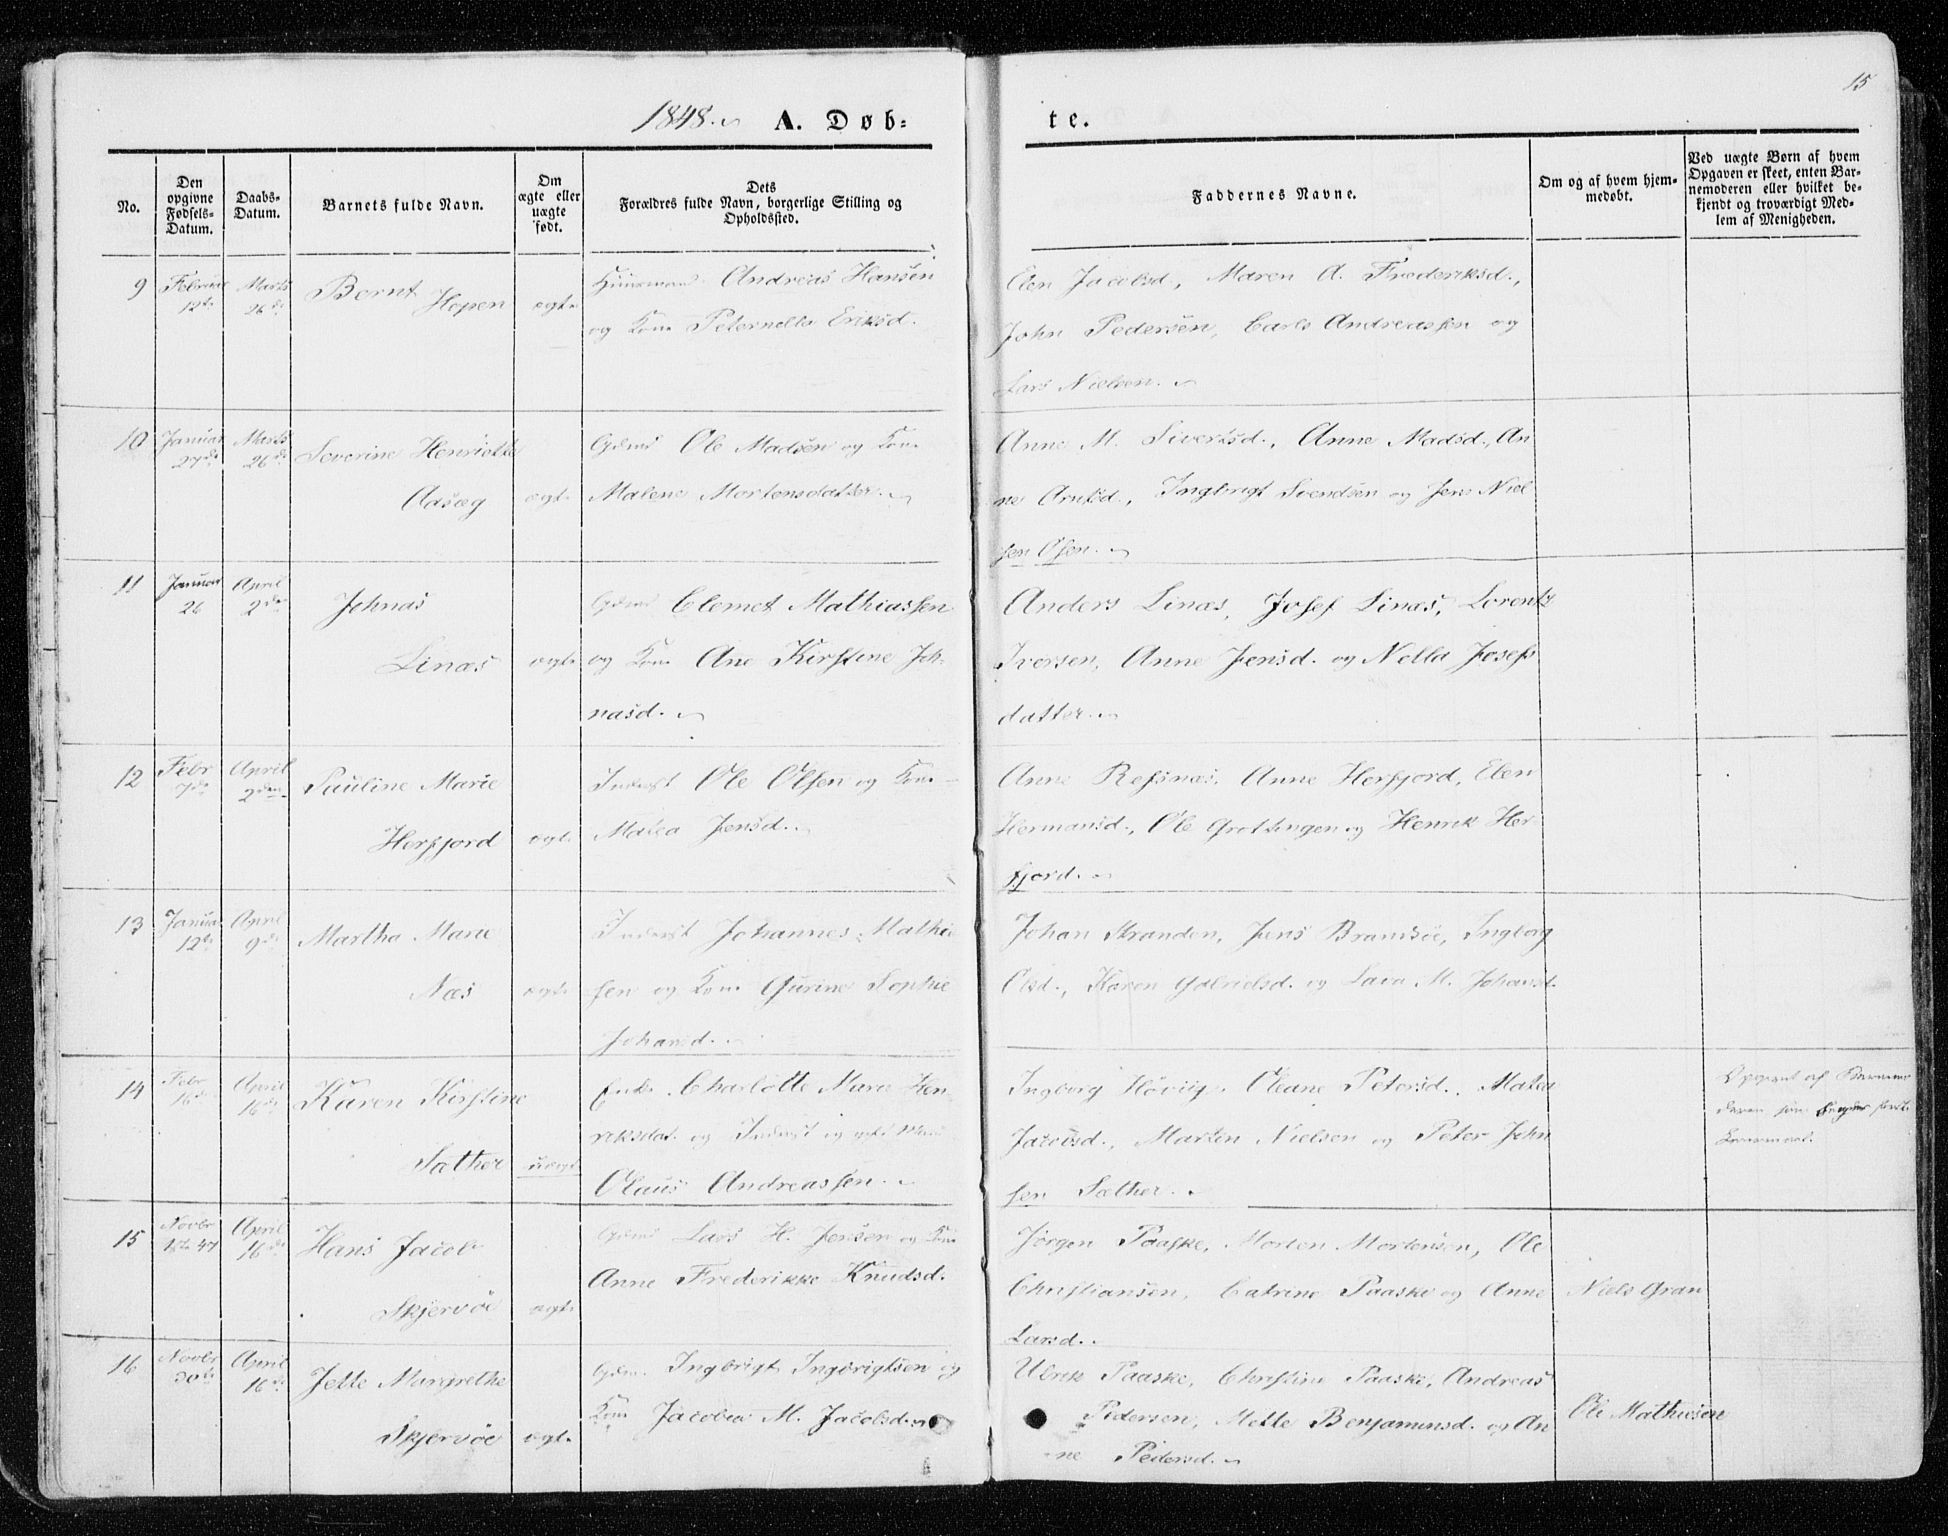 15
1848. A. Døb-
te.
No.
Den opgivne Fødsels-Datum.
Daabs-Datum.
Barnets fulde Navn.
Om ægte eller uægte født.
Dets Forældres fulde Navn, borgerlige Stilling og Opholdssted.
Faddernes Navne.
Om og af hvem hjem-
medøbt.
Ved uægte Børn af hvem
Opgaven er skeet, enten Bar-
nemoderen eller hvilket be-
kjendt og troværdigt Med-
lem af Menigheden.
9 Februar 12te Marts 26de Bernt Hopen ægte
Huusmand Andreas Hansen
og Kone Peternella Eriksd.
Elen Jacobsd., Maren A. Frederiksd.,
John Pedersen, Carls Andreassen og
Lars Nielsen.
10 Januar 27de Marts 26de Severine Henriette
Aasæg ægte
Gdmd Ole Madsen og Kone
Malene Mortensdatter.
Anne M. Sivertsd., Anne Madsd., An
ne Arntsd., Ingbrigt Svendsen og Jens Niel
sen Osen.
11 Januar 26 April 2den Johnas
Linæs ægte
Gdmd Clemet Mathiassen
og Kone Ane Kirstine Joh-
nasd.
Anders Linæs, Josef Linæs, Lorentz
Iversen, Anne Jensd. og Nella Josefs
datter.
12 Febr 7de April 2den Pauline Marie
Herfjord ægte
Inderst Ole Olsen og Kone
Malea Jensd.
Anne Refsnæs, Anne Herfjord, Elen
Hermansd., Ole Grottingen og Henrik Her
fjord.
13 Januar 12te April 9de Martha Marie
Næs ægte
Inderst Johannes Mathia
sen og Kone Gurine Sophie
Johansd.
Johan Stranden, Jens Brandsøe, Ingborg
Olsd., Karen Gabrielsd. og Lava M. Johansd.
14 Febr 16de April 16de Karen Kirstine
Sæther uægte
Enke Charlotte Marie Hen-
riksdat. og Inderst og gift Mand
Olaus Andreassen.
Ingborg Høvug, Oleane Petersd., Malea
Jacobsd., Martin Nielsen og Peter John
sen Sæther.
Opgivet af Barnemo
deren
15 Novbr 47 April 16de Hans Jacob
Skjervøe ægte
Gdmd Lars H. Jensen og Kone
Anne Frederikke Knudsd.
Jørgen Paaske, Morten Mortensen, Ole
Christiansen, Catrine Paaske og Anne
Larsd.
Niels Gran
16 Novbr 30te April 16de Jette Margrethe
Skjervøe ægte
Gdm. Ingbrigt Ingbrigtsen og
Kone Jacobea M. Jacobsd.
Ulrik Paaske, Christine Paaske, Andreas
Pedersen, Mette Benjaminsd. og An
ne Pedersd.
Ole Mathiesen